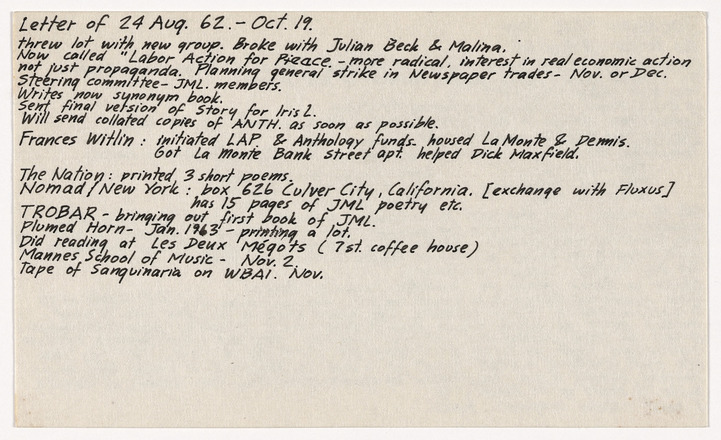 Letter of 24 Aug. 62. - Oct. 19.
threw lot with new group. Broke with Julian Beck & Malina.
Now called "Labor Action for Pieace. - more radical, interest in real economic action
not just propaganda. Planning general strike in Newspaper trades - Nov. or Dec.
Steering committee - JML. members.
Writes now synonym book.
Sent final version of Story for Iris L.
Will send collated copies of ANTH. as soon as possible.
Frances Witlin : initiated LAP & Anthology funds. housed La Monte & Dennis.
Got La Monte Bank Street apt. helped Dick Maxfield.
The Nation : printed 3 short poems.
Nomad/New York : box 626 Culver City, California. [exchange with Fluxus]
has 15 pages of JML poetry etc.
TROBAR - bringing out first book of JML.
Plumed Horn - Jan. 1963 - printing a lot.
Did reading at Les Deux Mégots (7 st. coffee house)
Mannes School of Music - Nov. 2.
Tape of Sanguinaria on WBAI. Nov.